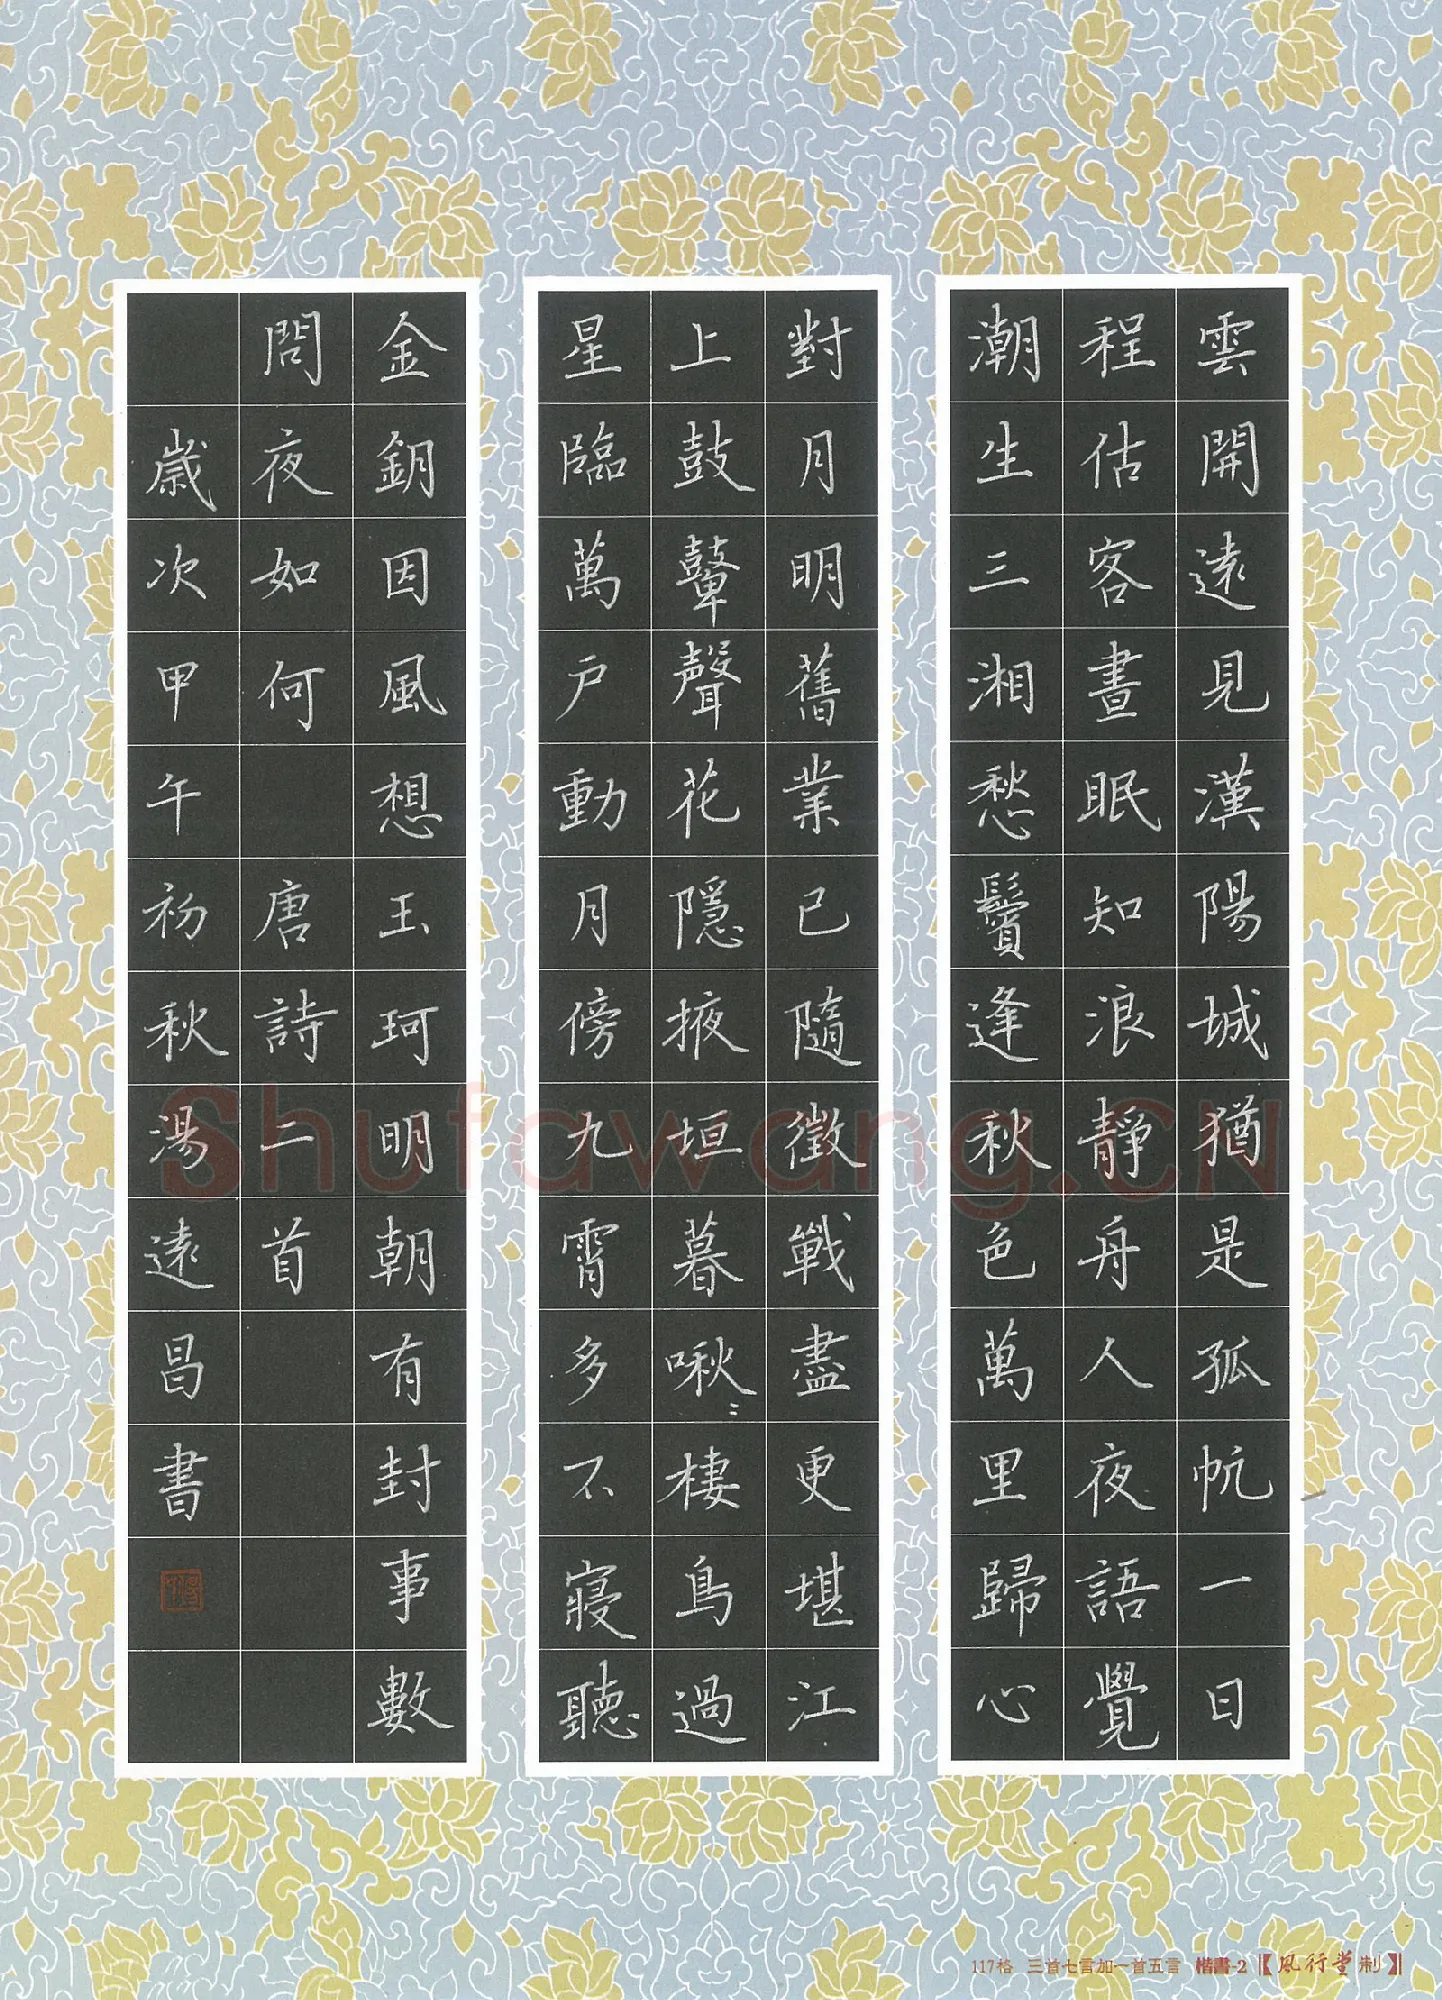 雲開遠見漢陽城猶是孤帆一日
程估客晝眠知浪靜舟人夜語覺
潮生三湘愁鬢逢秋色萬里歸心
對月明舊業已隨徵戰盡更堪江
上鼓鼙聲花隱掖垣暮啾〻棲鳥過
星臨萬戶動月傍九霄多不寢聽
金鑰因風想玉珂明朝有封事數
問夜如何 唐詩二首
歲次甲午初秋湯遠昌書
Shufawang.CN
117格 三首七言加一首五言 楷書-2【風行堂制】